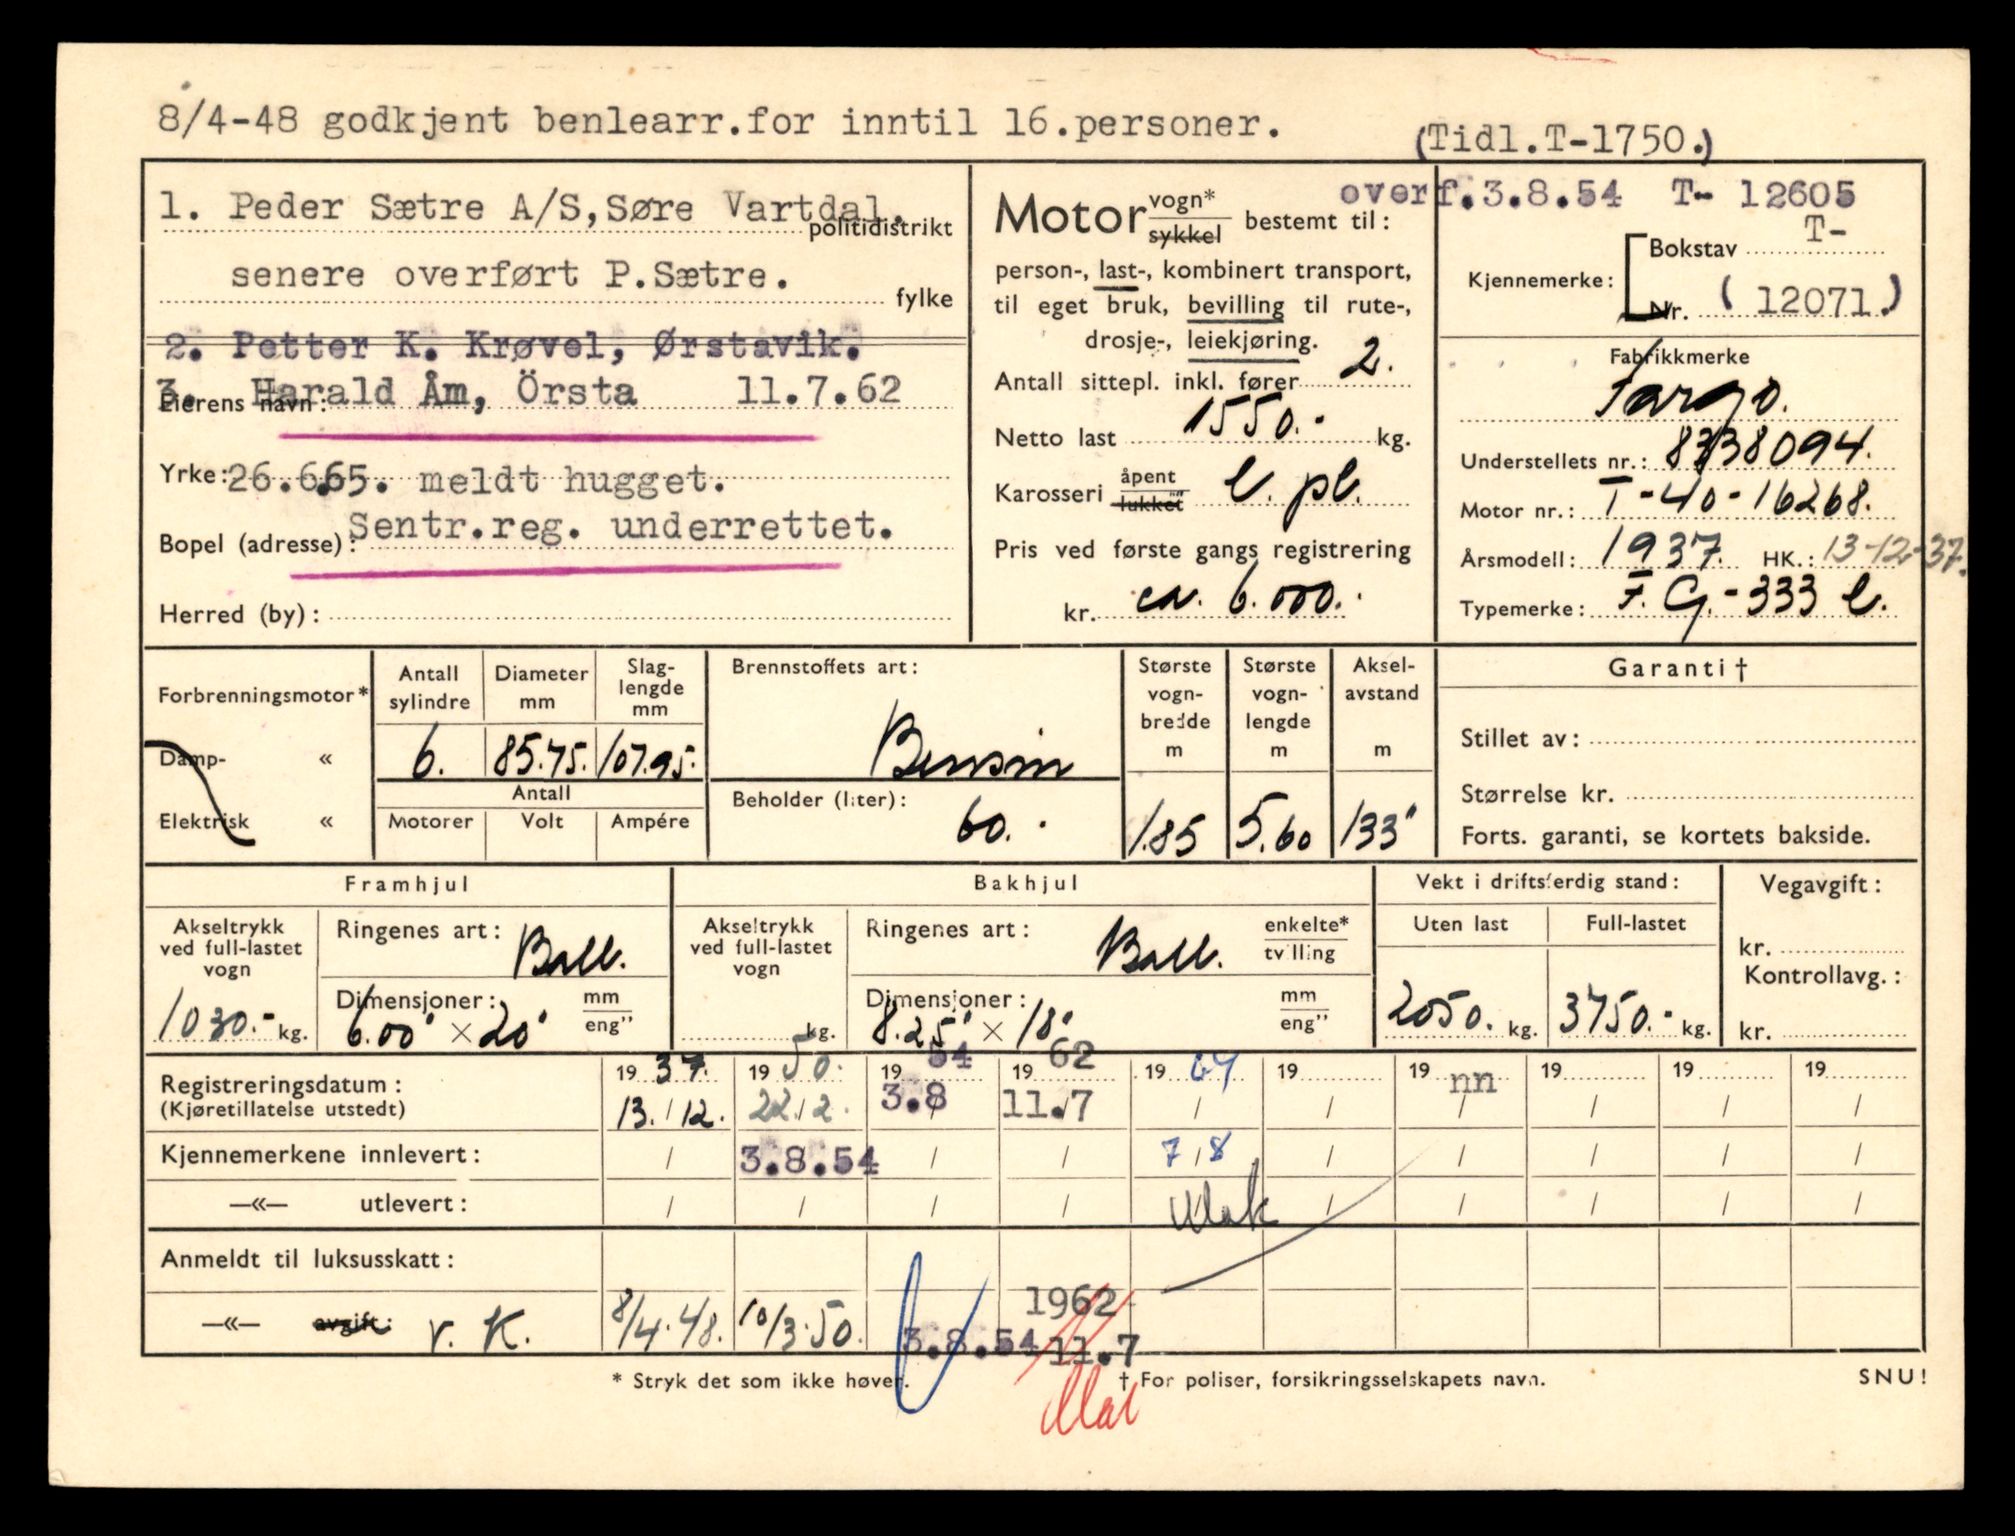 8/4-48 godkjent benlearr.for inntil 16.personer.
(Tidl.T-1750.)
1. Peder Sætre A/S,Søre Vartdal.
politidistrikt
senere overført P.Sætre.
fylke
2. Petter K. Krøvel, Ørstavik.
3. Harald Åm, Örsta 11.7.62
Eierens navn:
Yrke: 26.6.65. meldt hugget.
Sentr.reg. underrettet.
Bopel (adresse):
Herred (by):
Motor vogn* sykkel bestemt til:
person-, last-, kombinert transport,
til eget bruk, bevilling til rute-,
drosje-, leiekjøring.
Antall sittepl. inkl. fører 2.
Netto last 1550.- kg.
Karosseri åpent lukket l. pl.
Pris ved første gangs registrering
kr. ca. 6.000.-
overf.3.8.54 T- 12605
Kjennemerke: Bokstav T-
Nr. (12071.)
Fabrikkmerke
Fargo.
Understellets nr.: 8338094.
Motor nr.: T-40-16268.
Årsmodell: 1937. HK.: 13-12-37.
Typemerke: F.G.-333 l.
Forbrenningsmotor*
Damp- «
Elektrisk «
Antall sylindre 6.
Diameter mm 85.75.
Slag-lengde mm 107.95.
Antall
Motorer Volt Ampére
Brennstoffets art:
Bensin
Beholder (liter):
60.-
Største vogn-bredde m 1.85
Største vogn-lengde m 5.60
Aksel-avstand m 133"
Garanti †
Stillet av:
Størrelse kr.
Forts. garanti, se kortets bakside.
Framhjul
Akseltrykk ved full-lastet vogn 1030.- kg.
Ringenes art: Ball.
Dimensjoner: 6.00" × 20" mm eng"
Bakhjul
Akseltrykk ved full-lastet vogn kg.
Ringenes art: Ball. enkelte* tvilling
Dimensjoner: 8.25" × 18" mm eng"
Vekt i driftsferdig stand:
Uten last 2050. kg.
Full-lastet 3750.- kg.
Vegavgift:
kr.
Kontrollavg.:
kr.
Registreringsdatum: 1937. 1950. 1954 1962 1964 19 19 nn 19 19 19
(Kjøretillatelse utstedt) 13./12. 22/2. 3.8 11.7 / / / / / /
Kjennemerkene innlevert: / 3.8.54 / / 7/8 / / / / /
—«— utlevert: / / / / / / / / /
Anmeldt til luksusskatt:
—«— avgift: v. K. 8/4.48. 10/3.50. 3.8.54 1962 11.7
* Stryk det som ikke høver.
† For poliser, forsikringsselskapets navn.
SNU!